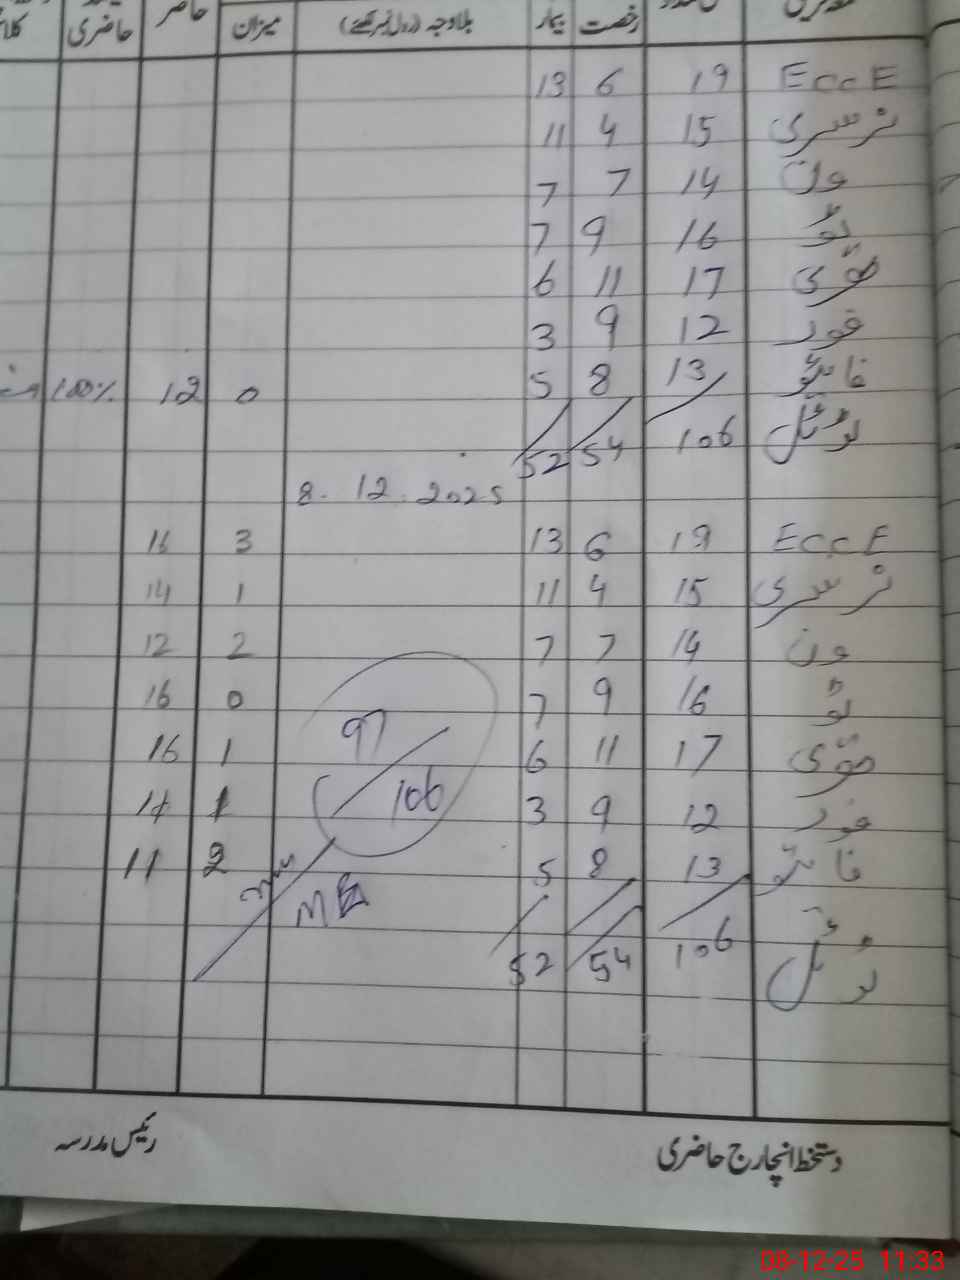 حاضری حاضر میزان بلاوجہ (رول نمبر لکھیئے) بیمار رخصت
EccE 19 6 13
نرسری 15 4 11
ون 14 7 7
ٹو 16 9 7
تھری 17 11 6
فور 12 9 3
فائیو 13 8 5 0 12 100%
ٹوٹل 106 54 52
8.12.2025
EccE 19 6 13 3 16
نرسری 15 4 11 1 14
ون 14 7 7 2 12
ٹو 16 9 7 0 16
تھری 17 11 6 1 16
فور 12 9 3 1 11
فائیو 13 8 5 2 11
97
106
ٹوٹل 106 54 52
دستخط انچارج حاضری رئیس مدرسہ
08-12-25 11:33